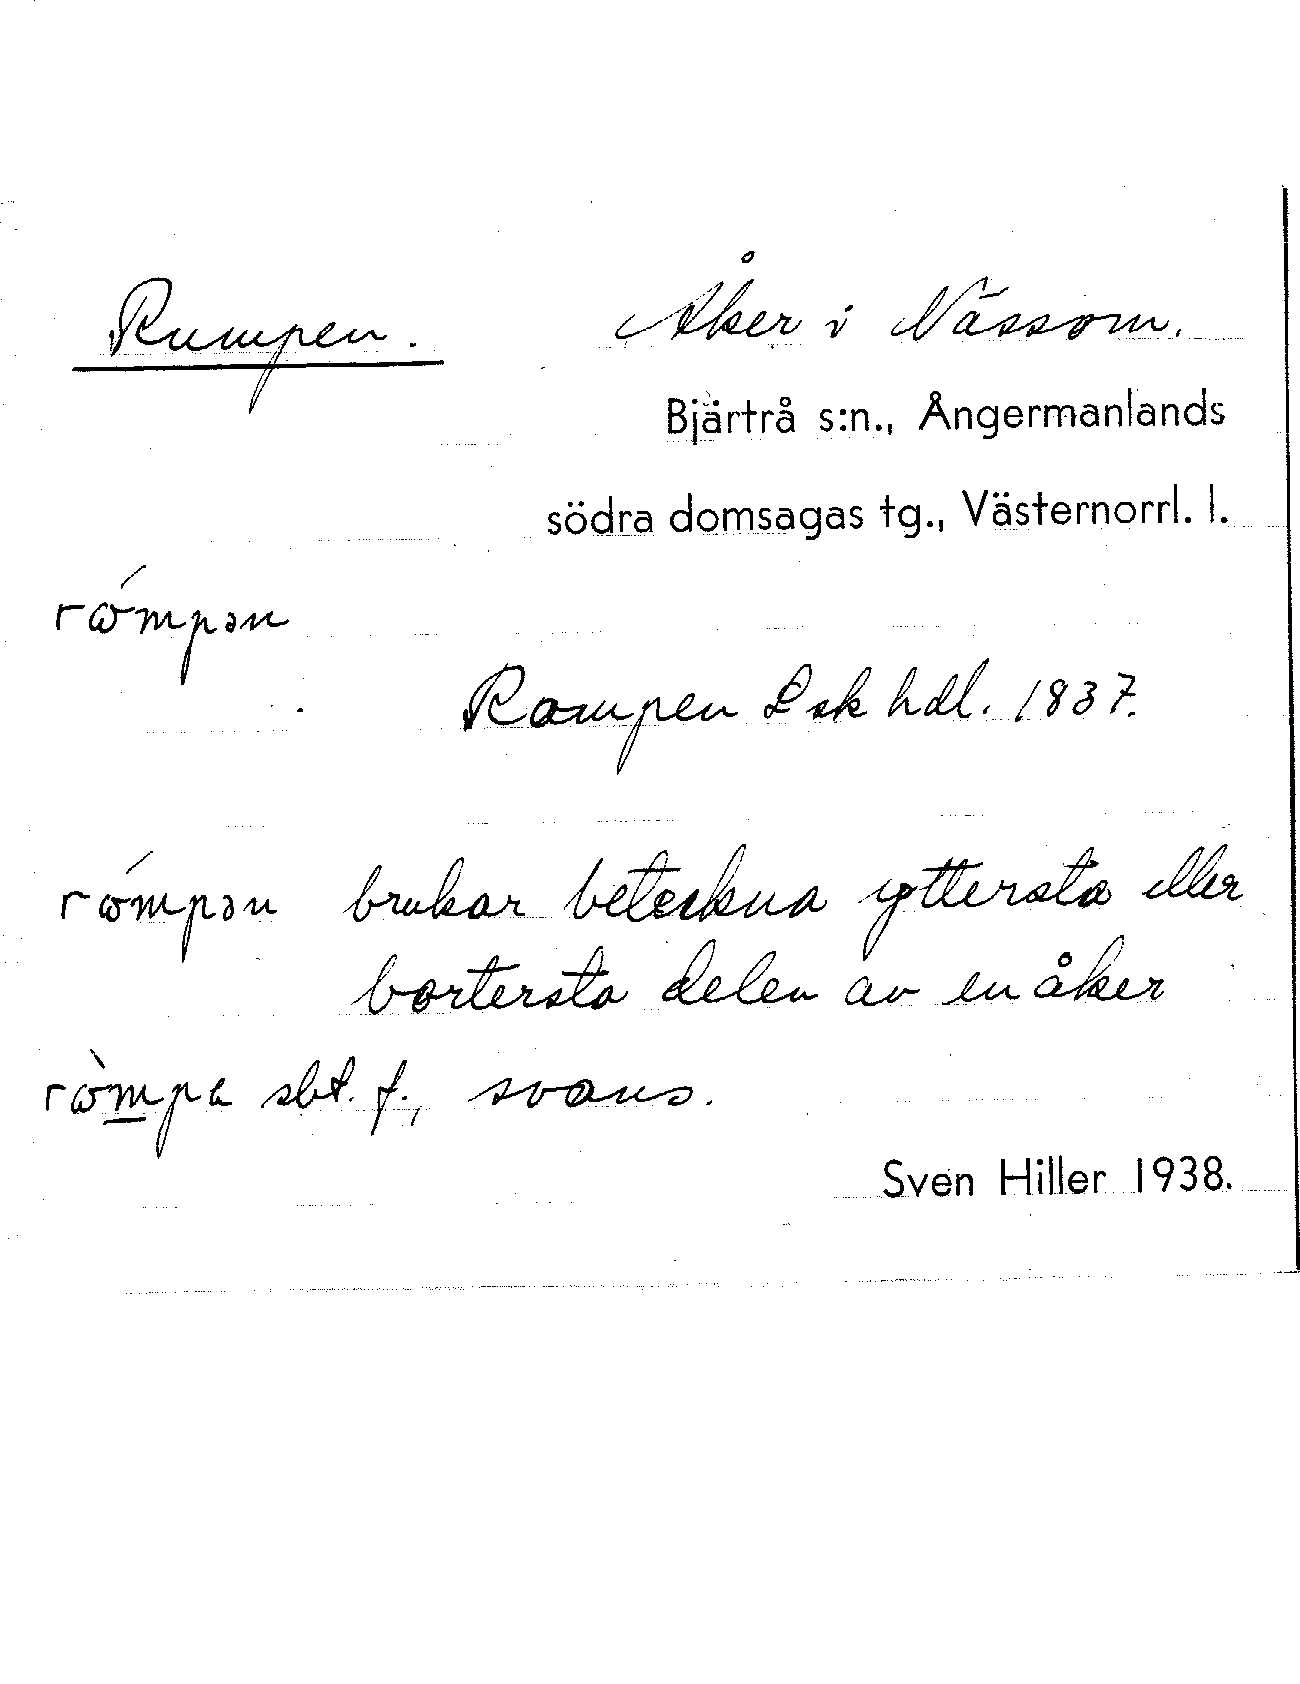 Rumpen. Åker i Nässom.
Bjärtrå s:n., Ångermanlands
södra domsagas tg., Västernorrl. l.
rɷ́mpən
Rampen Lsk hdl. 1837.
rɷ́mpən brukar beteckna yttersta eller
bortersta delen av en åker
rɷ̀m̲pa sbt. f., svans.
Sven Hiller 1938.